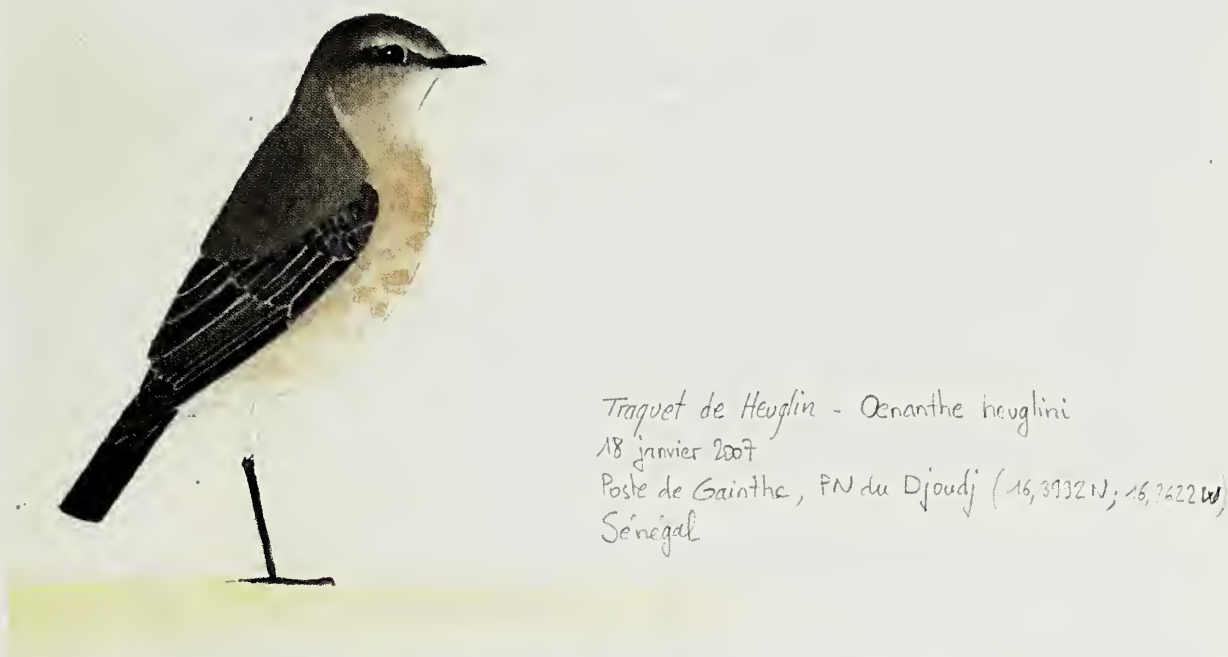 Traquet de Heuglin - Oenanthe heuglini
18 janvier 2007
Poste de Gainthe, PN du Djoudj (16,3932N; W)
Sénégal